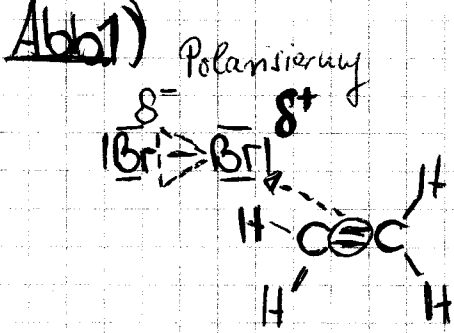 Abb1)
Polarisierung
δ⁻ δ⁺
|Br – Br|
H H
C=C
H H